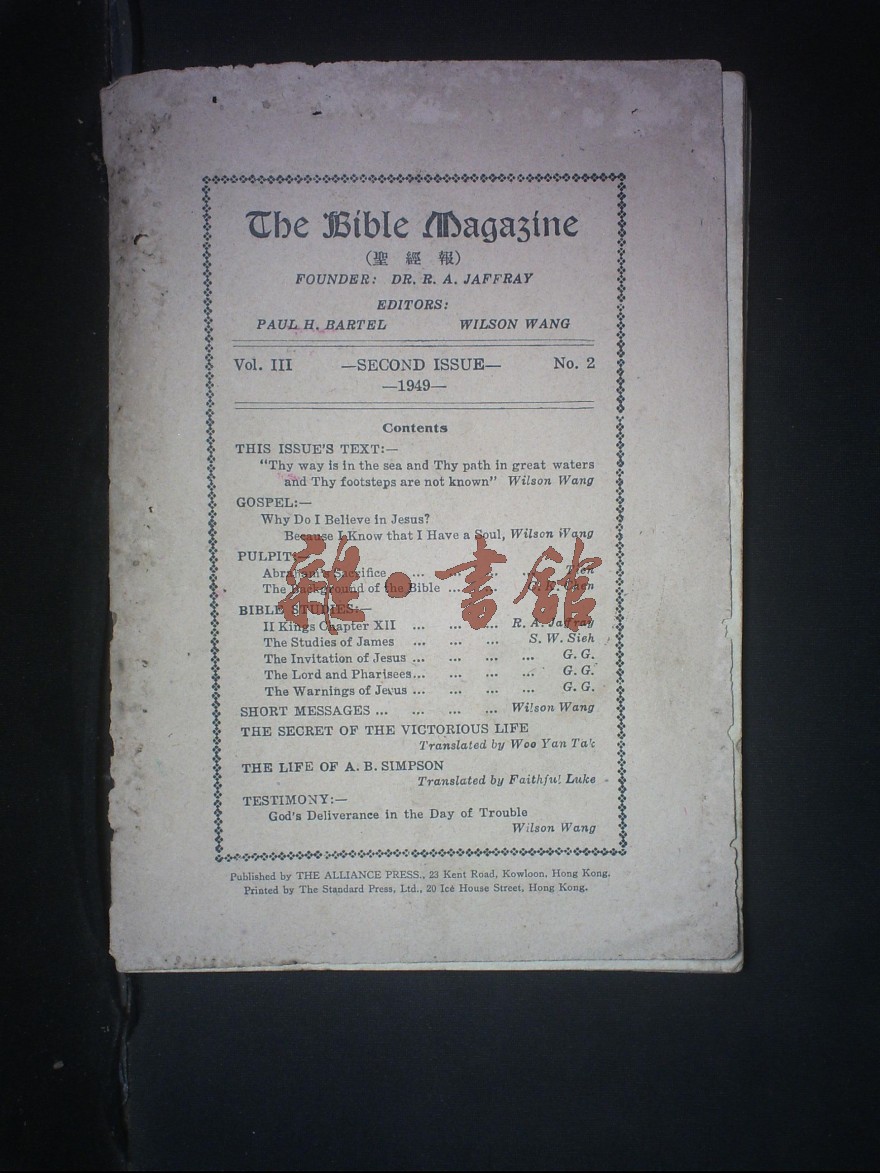 The Bible Magazine
（聖 經 報）
FOUNDER: DR. R. A. JAFFRAY
EDITORS:
PAUL H. BARTEL WILSON WANG
Vol. III —SECOND ISSUE— No. 2
—1949—
Contents
THIS ISSUE'S TEXT:—
"Thy way is in the sea and Thy path in great waters
and Thy footsteps are not known" Wilson Wang
GOSPEL:—
Why Do I Believe in Jesus?
Because I Know that I Have a Soul, Wilson Wang
PULPIT:—
Abraham's Sacrifice ... ... ... ...
The Background of the Bible ... ... Chen
BIBLE STUDIES:—
II Kings Chapter XII ... ... ... R. A. Jaffray
The Studies of James ... ... ... S. W. Sieh
The Invitation of Jesus ... ... ... ... G. G.
The Lord and Pharisees... ... ... ... G. G.
The Warnings of Jesus ... ... ... ... G. G.
SHORT MESSAGES ... ... ... ... Wilson Wang
THE SECRET OF THE VICTORIOUS LIFE
Translated by Woo Yan Tak
THE LIFE OF A. B. SIMPSON
Translated by Faithful Luke
TESTIMONY:—
God's Deliverance in the Day of Trouble
Wilson Wang
Published by THE ALLIANCE PRESS., 23 Kent Road, Kowloon, Hong Kong.
Printed by The Standard Press, Ltd., 20 Ice House Street, Hong Kong.
雜·書館